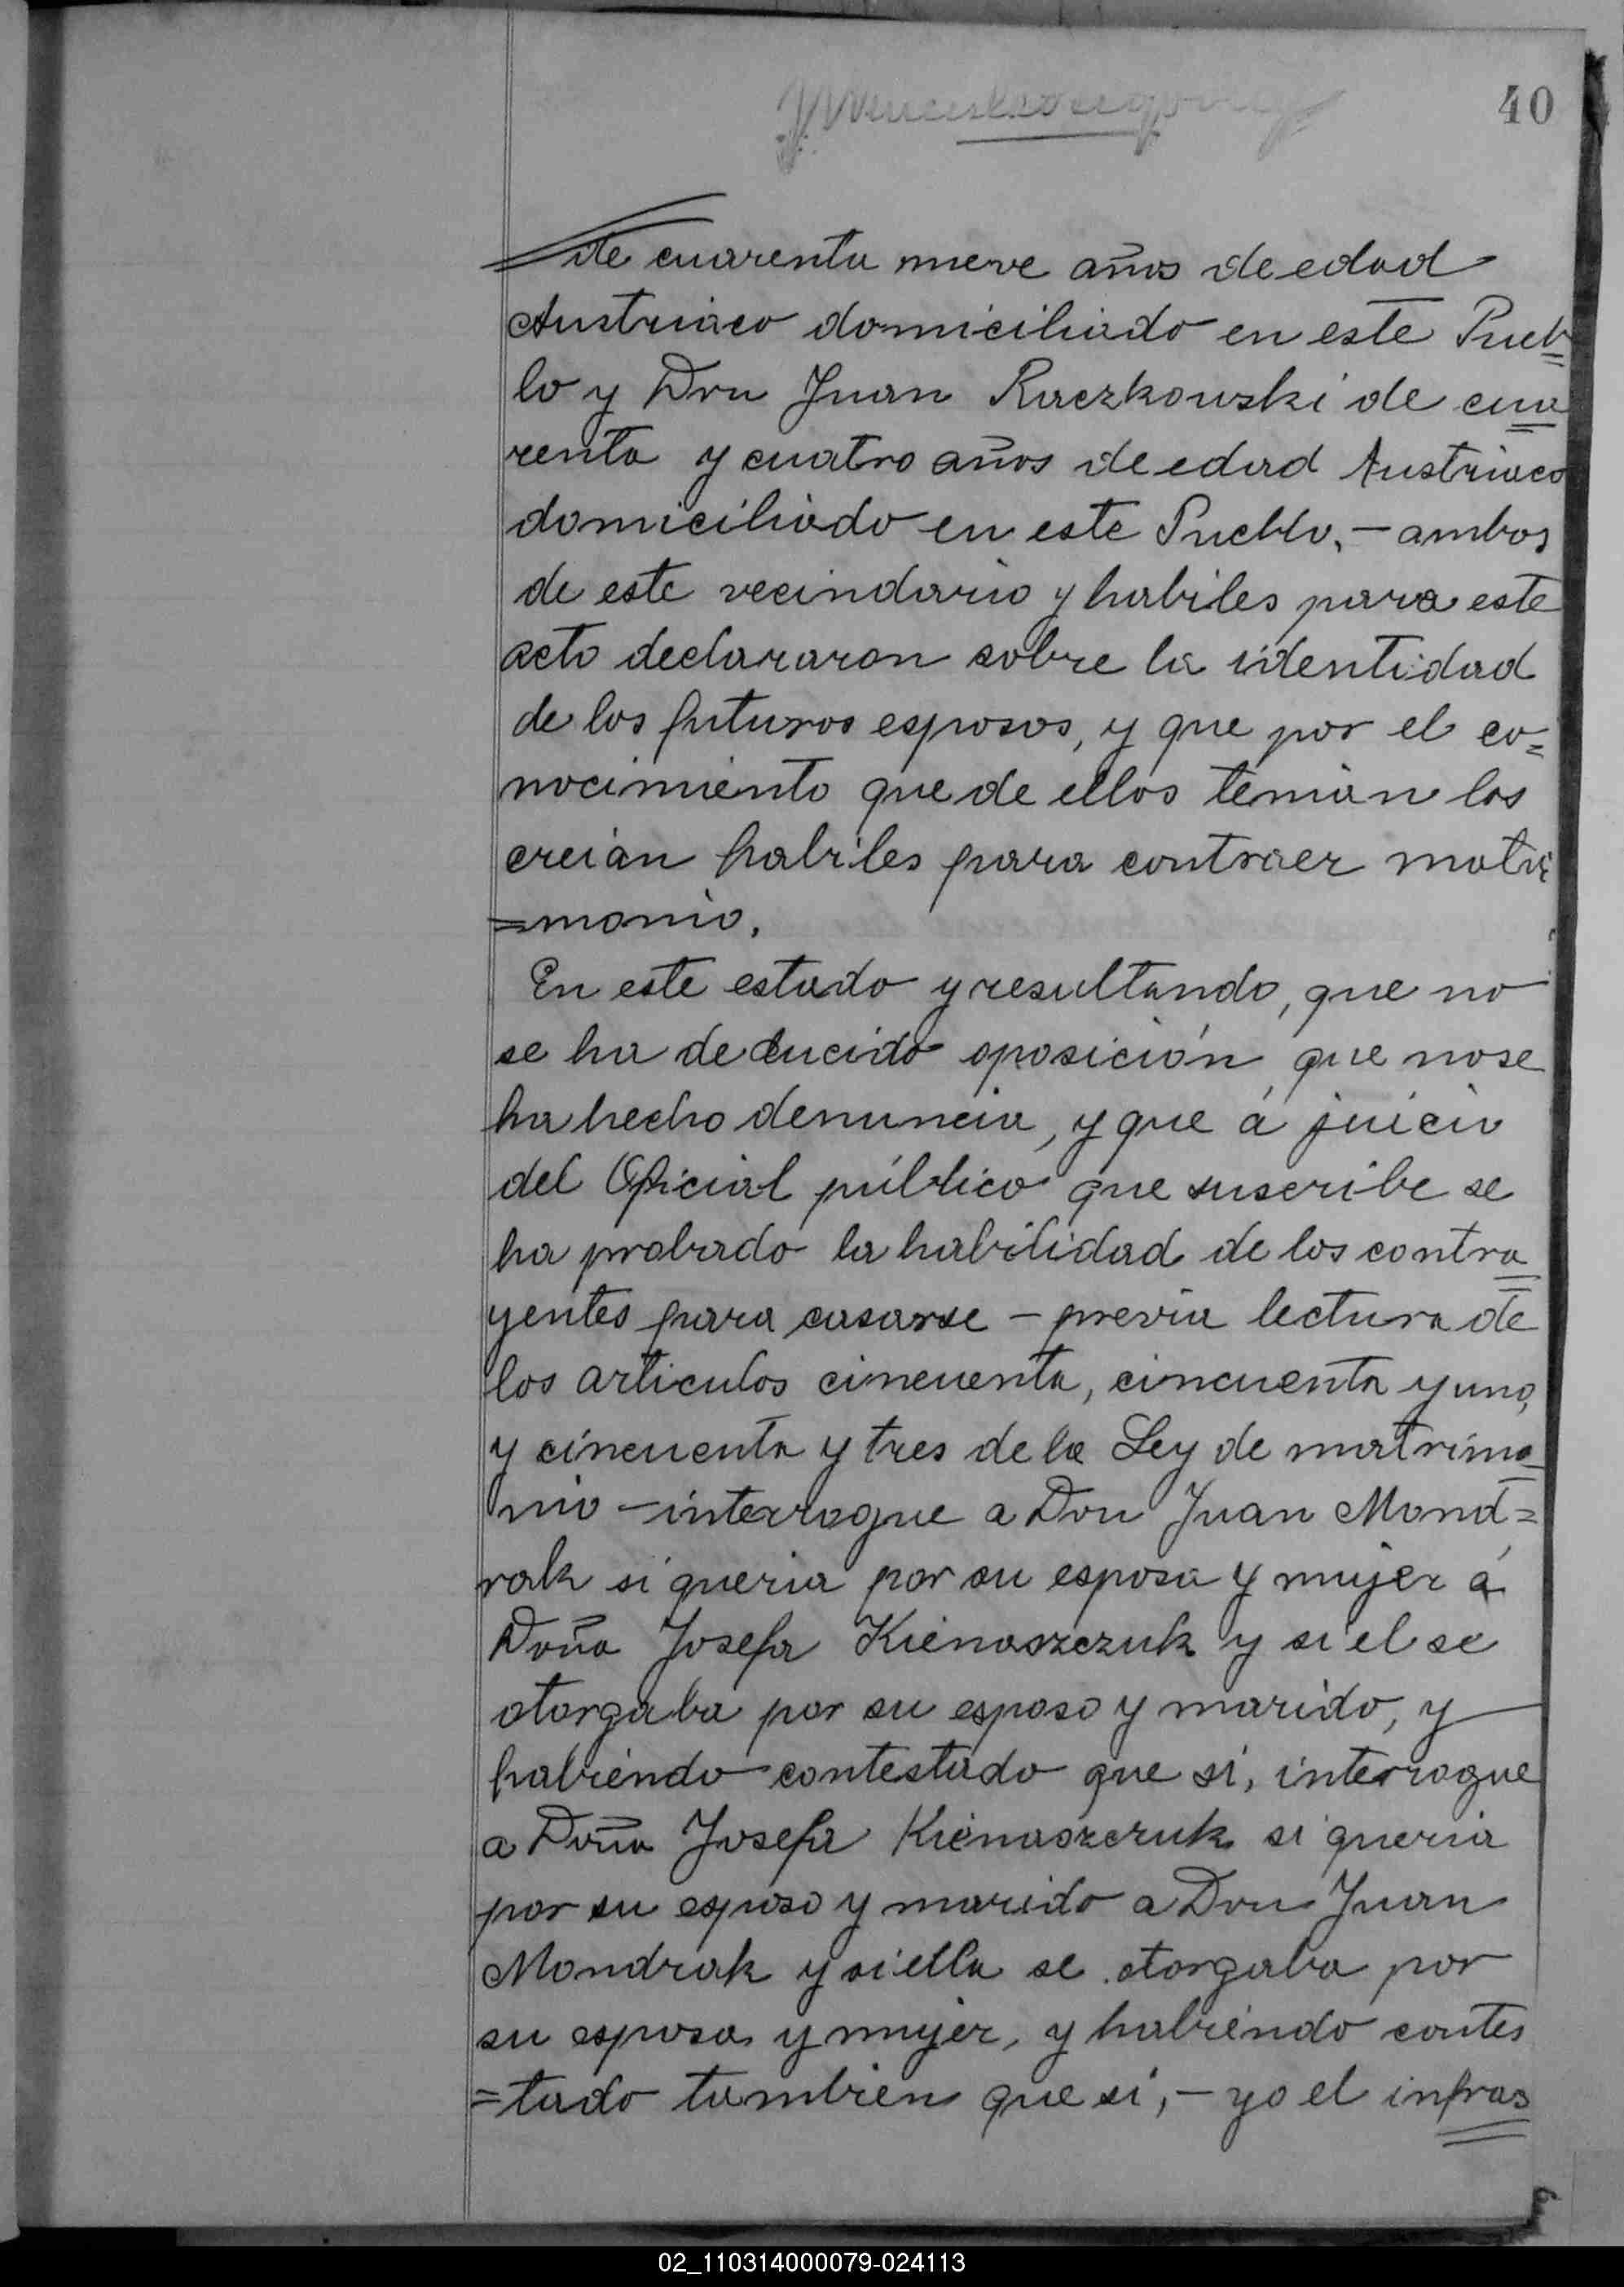 40
de cuarenta nueve años de edad
Austriaco domiciliado en este Pueb=
lo y Don Juan Raczkowski de cua=
renta y cuatro años de edad Austriaco
domiciliado en este Pueblo, - ambos
de este vecindario y habiles para este
acto declararon sobre la identidad
de los futuros esposos, y que por el co=
nocimiento que de ellos tenian los
creian habiles para contraer matri
=monio.
En este estado y resultando, que no
se ha deducido oposición, que no se
ha hecho denuncia, y que á juicio
del Oficial público que suscribe se
ha probado la habilidad de los contra=
yentes para casarse - previa lectura de
los articulos cincuenta, cincuenta y uno,
y cincuenta y tres de la Ley de matrimo=
nio - interrogue a Don Juan Mond=
rak si queria por su esposa y mujer á
Doña Josefa Kienaszczuk y si el se
otorgaba por su esposo y marido, y
habiendo contestado que si, interrogue
a Doña Josefa Kienaszczuk si queria
por su esposo y marido a Don Juan
Mondrak y si ella se otorgaba por
su esposa y mujer, y habiendo contes
=tado tambien que si, - yo el infras=
02_110314000079-024113